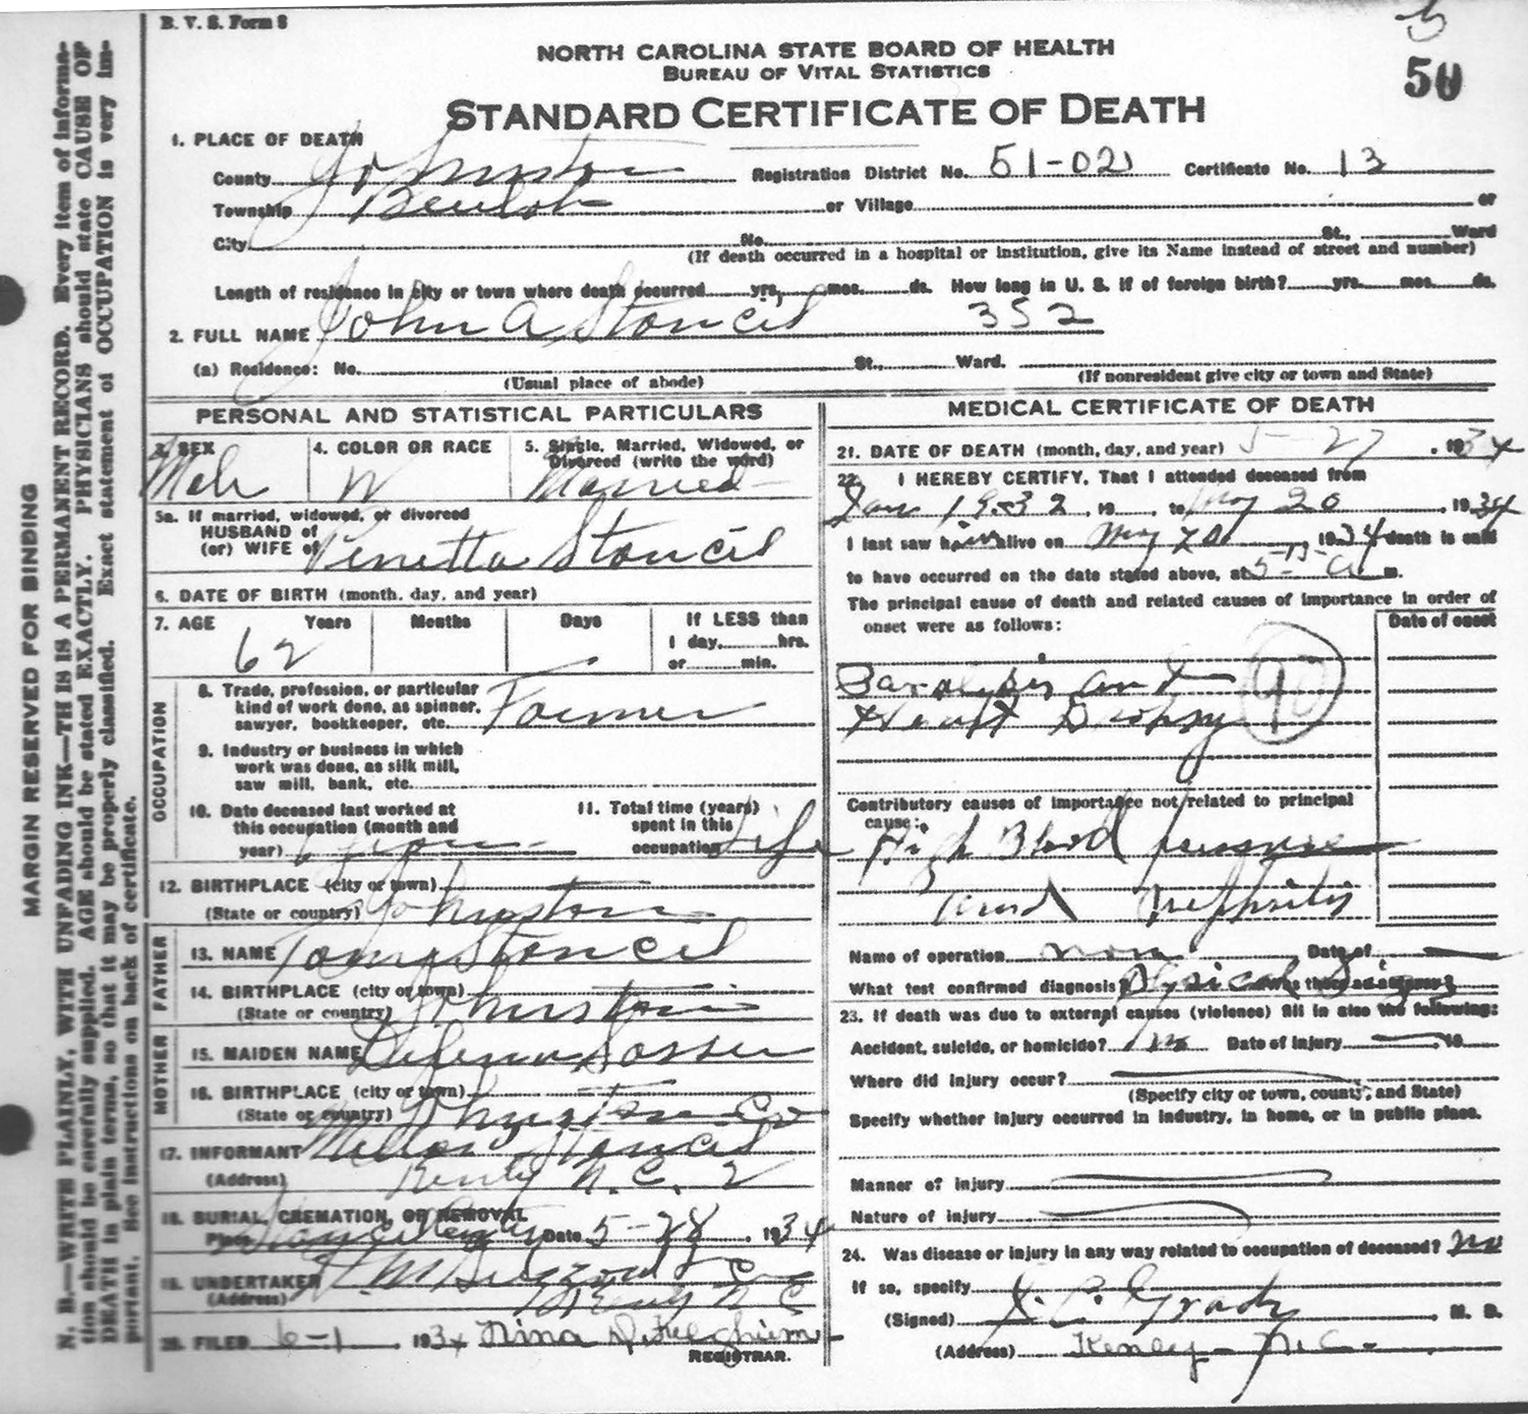 B. V. S. Form 8
50
NORTH CAROLINA STATE BOARD OF HEALTH
BUREAU OF VITAL STATISTICS
STANDARD CERTIFICATE OF DEATH
1. PLACE OF DEATH
County Johnston Registration District No. 51-02 Certificate No. 13
Township Beulah or Village or
City No. St., Ward
(If death occurred in a hospital or institution, give its Name instead of street and number)
Length of residence in city or town where death occurred yrs. mos. ds. How long in U. S. if of foreign birth? yrs. mos. ds.
2. FULL NAME John A Stancil 352
(a) Residence: No. St., Ward.
(Usual place of abode) (If nonresident give city or town and State)
PERSONAL AND STATISTICAL PARTICULARS
3. SEX 4. COLOR OR RACE 5. Single, Married, Widowed, or
Divorced (write the word)
Male W Married
5a. If married, widowed, or divorced
HUSBAND of
(or) WIFE of Venetta Stancil
6. DATE OF BIRTH (month, day, and year)
7. AGE Years Months Days If LESS than
1 day, hrs.
or min.
62
OCCUPATION
8. Trade, profession, or particular
kind of work done, as spinner,
sawyer, bookkeeper, etc. Farmer
9. Industry or business in which
work was done, as silk mill,
saw mill, bank, etc.
10. Date deceased last worked at
this occupation (month and
year)
11. Total time (years)
spent in this
occupation Life
12. BIRTHPLACE (city or town)
(State or country) Johnston
FATHER
13. NAME Stancil
14. BIRTHPLACE (city or town)
(State or country) Johnston
MOTHER
15. MAIDEN NAME Sasser
16. BIRTHPLACE (city or town)
(State or country) Johnston Co
17. INFORMANT Stancil
(Address) Kenly N.C. 2
18. BURIAL, CREMATION, OR REMOVAL
Place Date 5-28, 1934
19. UNDERTAKER
(Address) Kenly N C
20. FILED 6-1 1934 Nina
REGISTRAR.
MEDICAL CERTIFICATE OF DEATH
21. DATE OF DEATH (month, day, and year) 5-27, 1934
22. I HEREBY CERTIFY, That I attended deceased from
Jan 1932, 19 to May 20, 1934
I last saw him alive on May 20, 1934 death is said
to have occurred on the date stated above, at 5-15 a m.
The principal cause of death and related causes of importance in order of
onset were as follows:
Date of onset
Paralysis and
Heart Dropsy
90
Contributory causes of importance not related to principal
cause:
High Blood pressure
and Nephritis
Name of operation none Date of
What test confirmed diagnosis? Physical Signs Was there an autopsy?
23. If death was due to external causes (violence) fill in also the following:
Accident, suicide, or homicide? Date of injury 19
Where did injury occur?
(Specify city or town, county, and State)
Specify whether injury occurred in industry, in home, or in public place.
Manner of injury
Nature of injury
24. Was disease or injury in any way related to occupation of deceased? no
If so, specify
(Signed) J. C. Grady, M. D.
(Address) Kenly N.C.
MARGIN RESERVED FOR BINDING
N. B.—WRITE PLAINLY, WITH UNFADING INK—THIS IS A PERMANENT RECORD. Every item of informa-
tion should be carefully supplied. AGE should be stated EXACTLY. PHYSICIANS should state CAUSE OF
DEATH in plain terms, so that it may be properly classified. Exact statement of OCCUPATION is very im-
portant. See instructions on back of certificate.